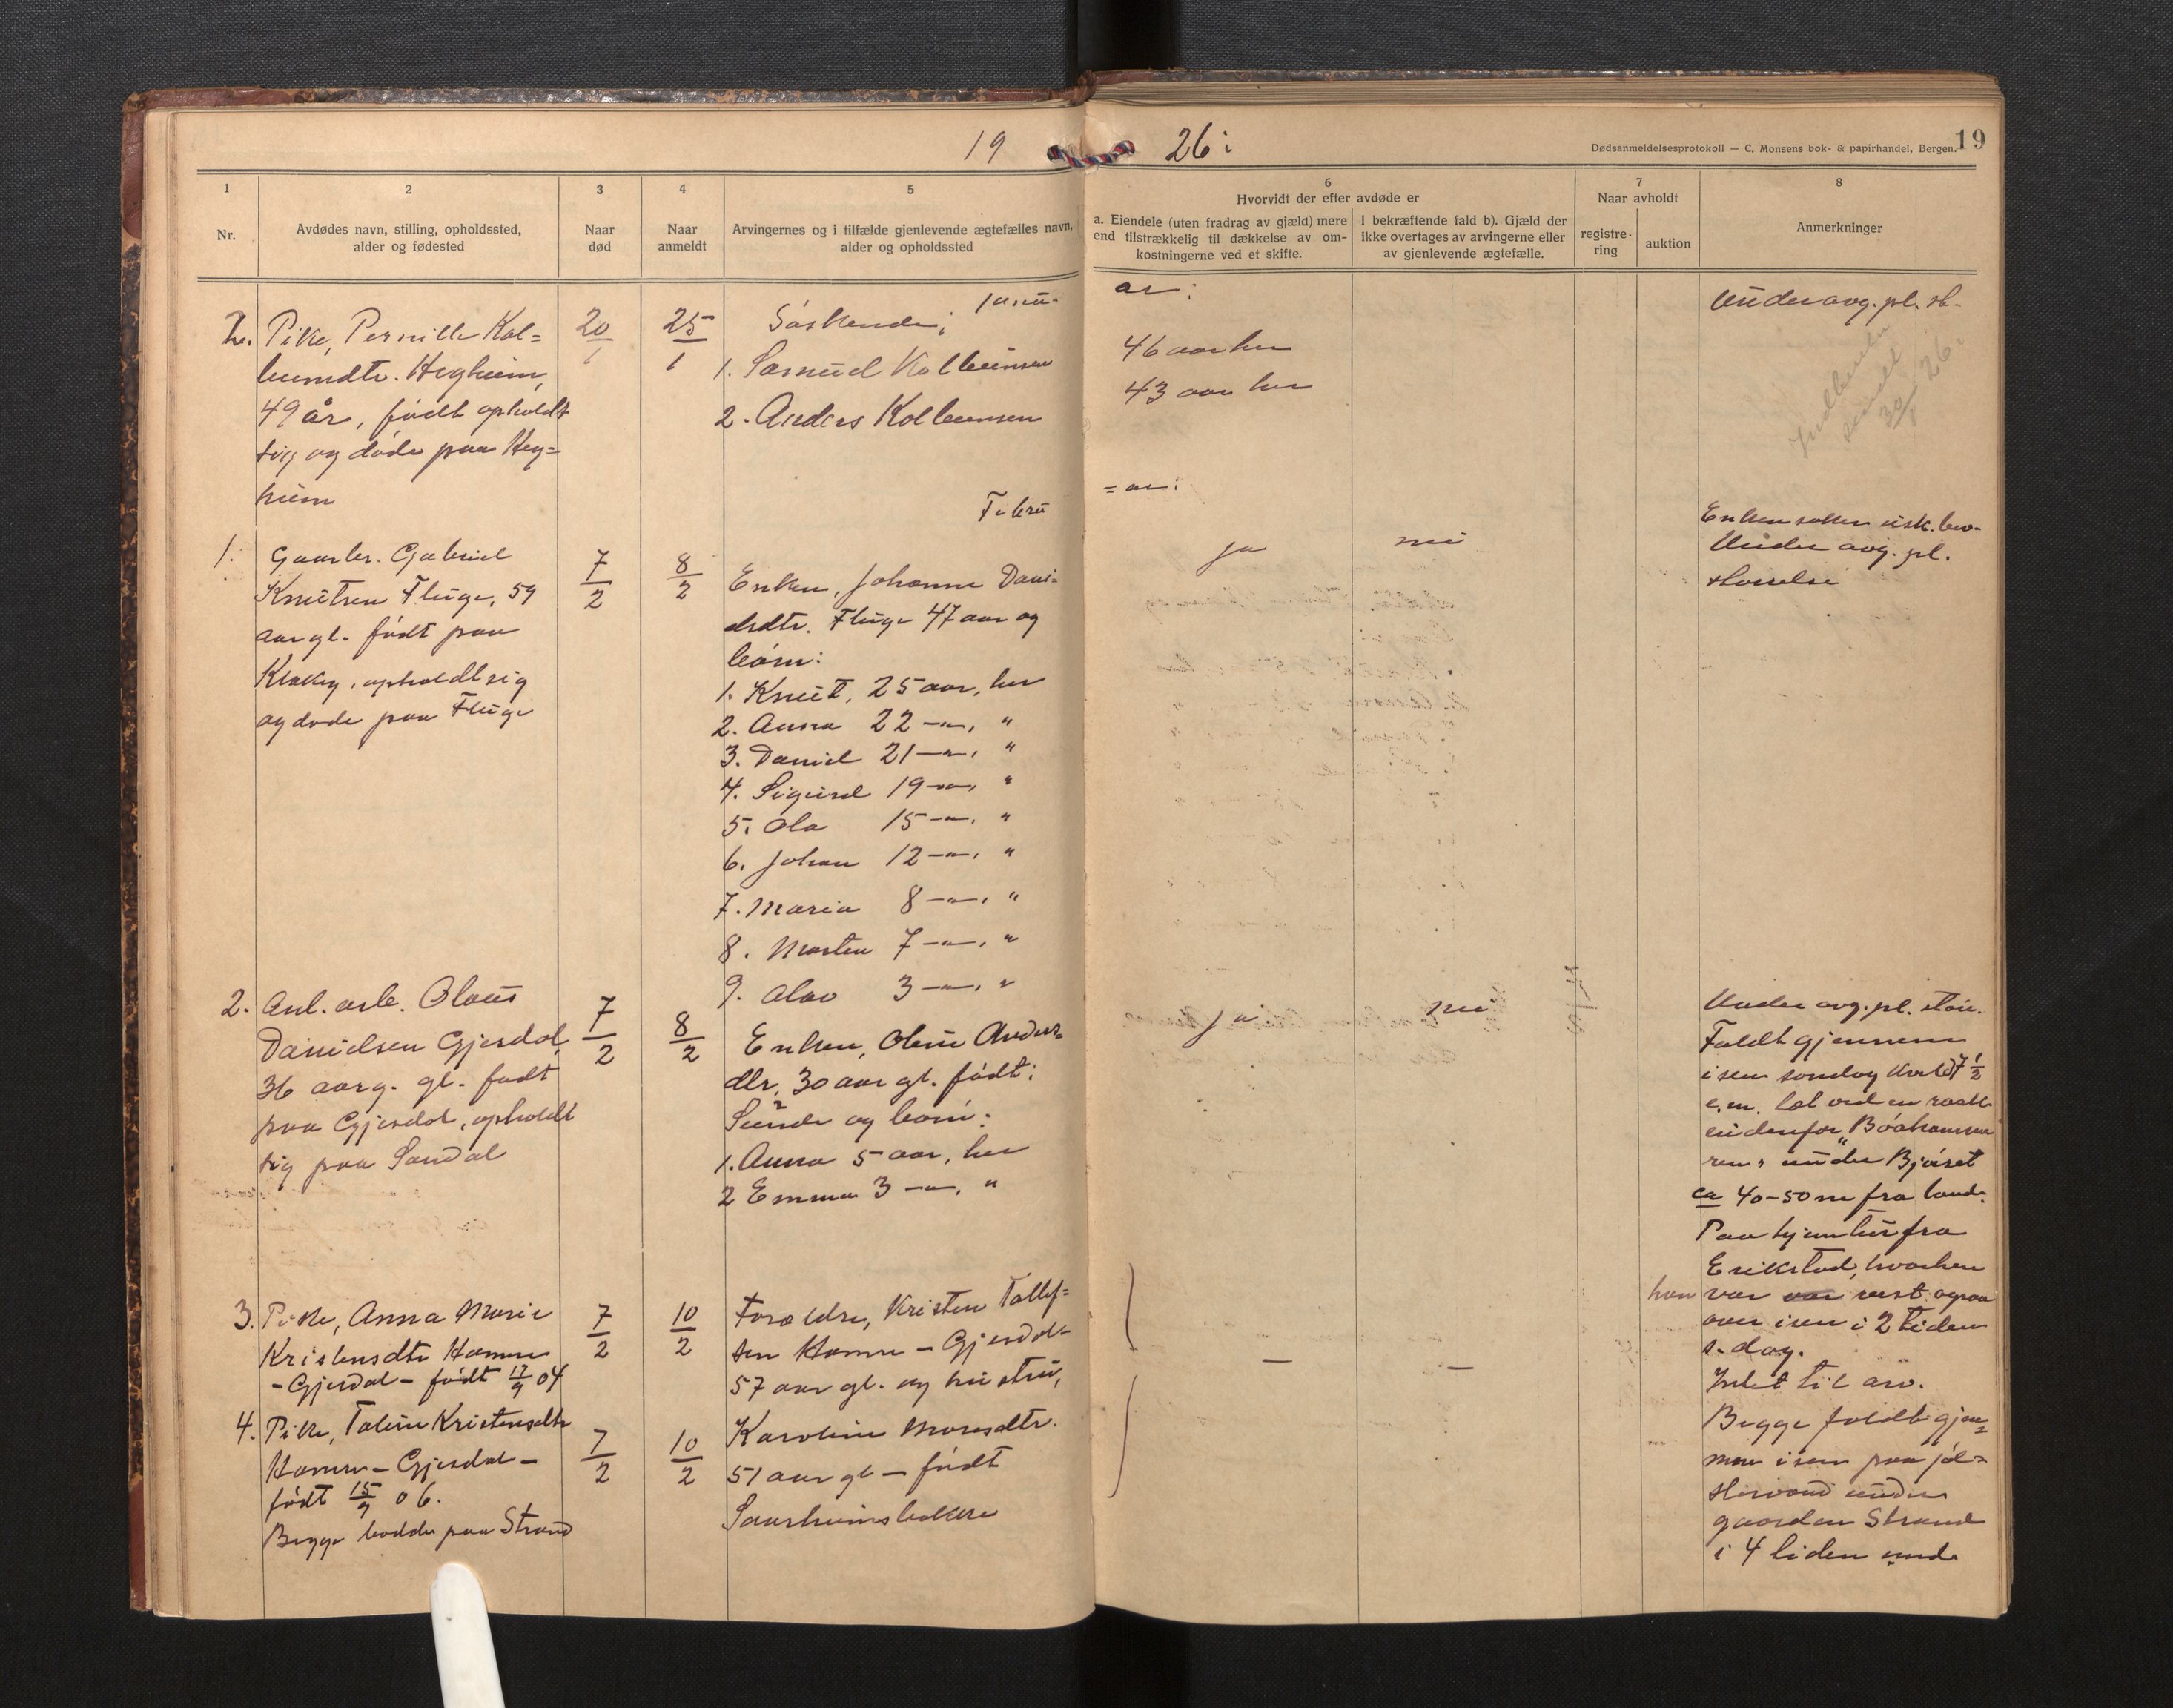 19
26
Dødsanmeldelsesprotokoll — C. Monsens bok- & papirhandel, Bergen.
19
1
Nr.
2
Avdødes navn, stilling, opholdssted,
alder og fødested
3
Naar
død
4
Naar
anmeldt
5
Arvingernes og i tilfælde gjenlevende ægtefælles navn,
alder og opholdssted
6
Hvorvidt der efter avdøde er
a. Eiendele (uten fradrag av gjæld) mere
end tilstrækkelig til dækkelse av om-
kostningerne ved et skifte.
I bekræftende fald b). Gjæld der
ikke overtages av arvingerne eller
av gjenlevende ægtefælle.
7
Naar avholdt
registre-
ring
auktion
8
Anmerkninger
Janu-
ar:
2. Pike, Pernille Kol=
beinsdtr. Hegheim,
49 år, født opholdt
sig og døde paa Heg=
heim
20/1
25/1
Søskende;
1. Samuel Kolbeinsen
2. Anders Kolbeinsen
46 aar her
43 aar her
Under avg. pl. st.
30/1 26.
Febru
=ar:
1. Gaarbr. Gabriel
Knutsen Fluge, 59
aar gl. født paa
Klakeg, opholdt sig
og døde paa Fluge
7/2
8/2
Enken, Johanne Dani=
elsdtr. Fluge 47 aar og
børn:
1. Knut, 25 aar, her
2. Anna 22 —"—, "
3. Daniel 21 —"—, "
4. Sigurd 19 —"—, "
5. Ola 15 —"—, "
6. Johan 12 —"—, "
7. Maria 8 —"—, "
8. Marten 7 —"—, "
9. Olav 3 —"—, "
ja
nei
Enken sitter uisk. bo.
Under avg. pl.
størrelse
2. Anl. arb. Olaus
Danielsen Gjesdal,
36 aar g. gl. født
paa Gjesdal, opholdt
sig paa Sandal
7/2
8/2
Enken, Oline Anders=
dtr, 30 aar gl. født:
Sunde og børn:
1. Anna 5 aar, her
2 Emma 3 —"—, "
ja
nei
Under avg. pl. stør.
Faldt gjennem
isen søndag kveld 7 1/2
e.m. ved en raak
nidenfor "Bøahamme
ren" under Bjørset
ca 40-50 m fra land.
Paa hjemtur fra
Erikstad, hvorhen
han var reist ogsaa
over isen i 2 tiden
s. dag.
3. Pike, Anna Marie
Kristensdtr Hamre
- Gjesdal - født 17/9 04
7/2
10/2
Forældre, Kristen Tollef=
sen Hamre - Gjesdal -
57 aar gl. og hustru,
Karoline Monsdtr.
51 aar gl — født
—
—
Intet til arv.
Begge faldt gjen=
nem isen paa Jøl=
stervand under
gaarden Strand
i 4 tiden
4. Pike, Taline Kristensdtr
Hamre - Gjesdal -
født 15/9 06.
Begge bodde paa Strand
7/2
10/2